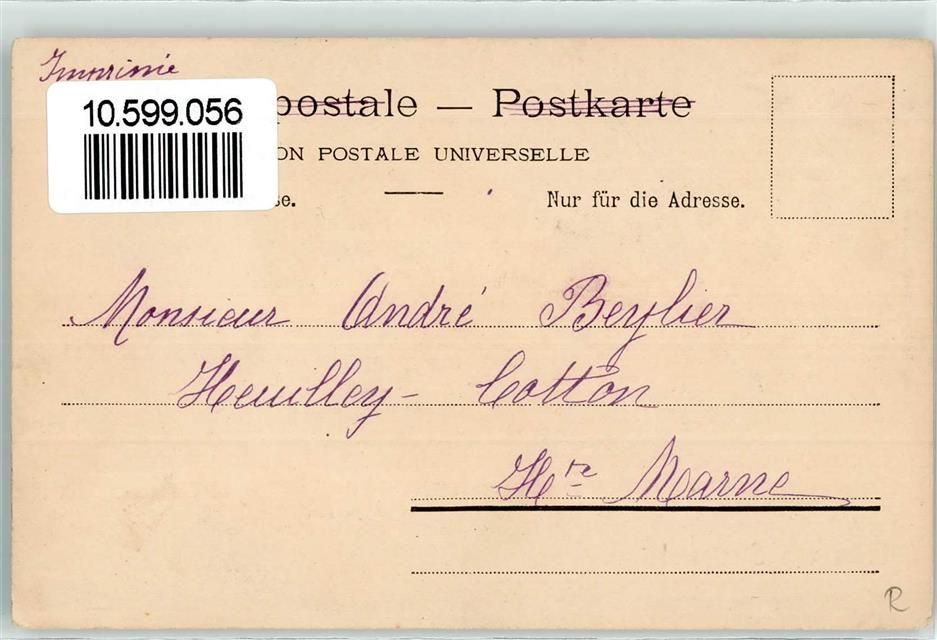 Imprimé
10.599.056
postale — Postkarte
ON POSTALE UNIVERSELLE
se.
Nur für die Adresse.
Monsieur André Beylier
Heuilley-Cotton
Hte Marne
R